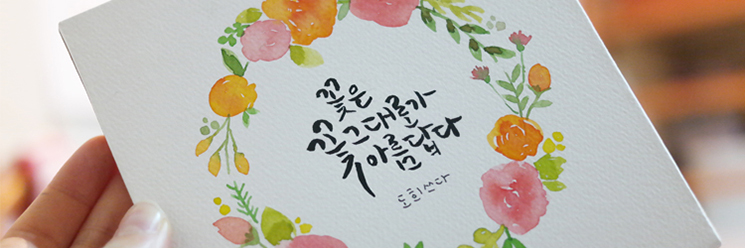 꽃은
꽃그대로가
아름답다
도희쓰다